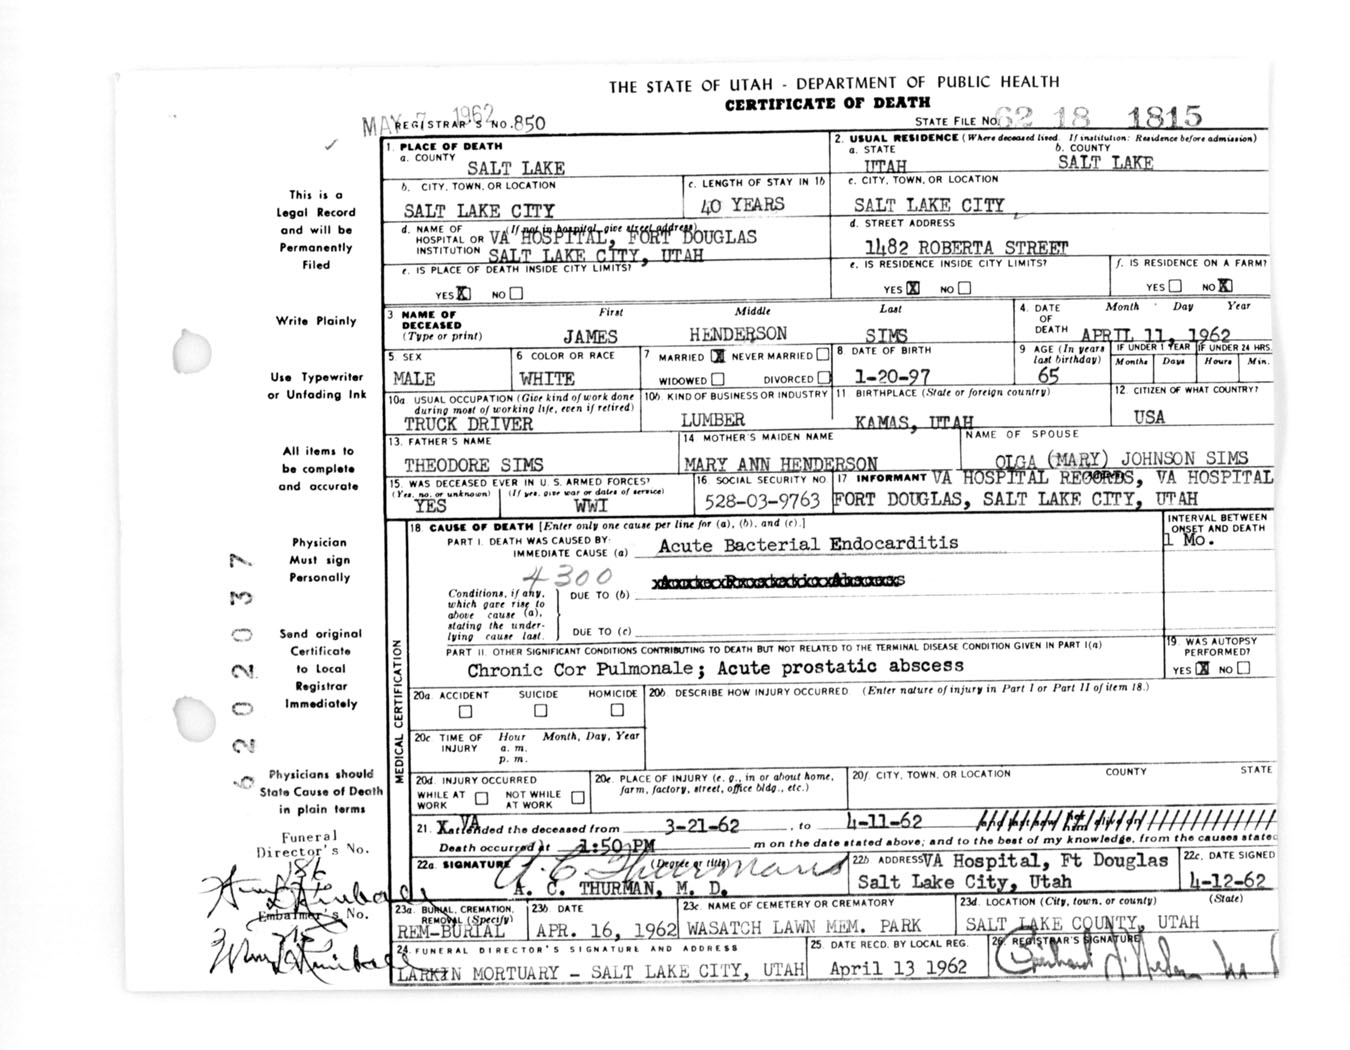 THE STATE OF UTAH - DEPARTMENT OF PUBLIC HEALTH
CERTIFICATE OF DEATH
MAY 7 1962
REGISTRAR'S NO. 850
STATE FILE NO. 62 18 1815
This is a
Legal Record
and will be
Permanently
Filed
Write Plainly
Use Typewriter
or Unfading Ink
All items to
be complete
and accurate
Physician
Must sign
Personally
Send original
Certificate
to Local
Registrar
Immediately
Physicians should
State Cause of Death
in plain terms
Funeral
Director's No.
186
Embalmer's No.
62 02 037
1. PLACE OF DEATH
a. COUNTY
SALT LAKE
2. USUAL RESIDENCE (Where deceased lived. If institution: Residence before admission)
a. STATE
UTAH
b. COUNTY
SALT LAKE
b. CITY, TOWN, OR LOCATION
SALT LAKE CITY
c. LENGTH OF STAY IN 1b
40 YEARS
c. CITY, TOWN, OR LOCATION
SALT LAKE CITY
d. NAME OF HOSPITAL OR INSTITUTION (If not in hospital, give street address)
VA HOSPITAL, FORT DOUGLAS
SALT LAKE CITY, UTAH
d. STREET ADDRESS
1482 ROBERTA STREET
e. IS PLACE OF DEATH INSIDE CITY LIMITS?
YES X NO
e. IS RESIDENCE INSIDE CITY LIMITS?
YES X NO
f. IS RESIDENCE ON A FARM?
YES NO X
3 NAME OF DECEASED (Type or print)
First Middle Last
JAMES HENDERSON SIMS
4. DATE OF DEATH
Month Day Year
APRIL 11, 1962
5 SEX
MALE
6 COLOR OR RACE
WHITE
7 MARRIED X NEVER MARRIED
WIDOWED DIVORCED
8 DATE OF BIRTH
1-20-97
9 AGE (In years last birthday)
65
IF UNDER 1 YEAR
Months Days
IF UNDER 24 HRS.
Hours Min.
10a. USUAL OCCUPATION (Give kind of work done during most of working life, even if retired)
TRUCK DRIVER
10b. KIND OF BUSINESS OR INDUSTRY
LUMBER
11. BIRTHPLACE (State or foreign country)
KAMAS, UTAH
12. CITIZEN OF WHAT COUNTRY?
USA
13. FATHER'S NAME
THEODORE SIMS
14 MOTHER'S MAIDEN NAME
MARY ANN HENDERSON
NAME OF SPOUSE
OLGA (MARY) JOHNSON SIMS
15. WAS DECEASED EVER IN U. S. ARMED FORCES?
(Yes, no, or unknown) (If yes, give war or dates of service)
YES WWI
16 SOCIAL SECURITY NO.
528-03-9763
17 INFORMANT VA HOSPITAL RECORDS, VA HOSPITAL
FORT DOUGLAS, SALT LAKE CITY, UTAH
MEDICAL CERTIFICATION
18 CAUSE OF DEATH [Enter only one cause per line for (a), (b), and (c).]
INTERVAL BETWEEN ONSET AND DEATH
PART I. DEATH WAS CAUSED BY:
IMMEDIATE CAUSE (a) Acute Bacterial Endocarditis
1 Mo.
4300
Conditions, if any, which gave rise to above cause (a), stating the underlying cause last.
DUE TO (b) Acute Prostatic Abscess
DUE TO (c)
PART II. OTHER SIGNIFICANT CONDITIONS CONTRIBUTING TO DEATH BUT NOT RELATED TO THE TERMINAL DISEASE CONDITION GIVEN IN PART I(a)
Chronic Cor Pulmonale; Acute prostatic abscess
19. WAS AUTOPSY PERFORMED?
YES X NO
20a. ACCIDENT SUICIDE HOMICIDE
20b. DESCRIBE HOW INJURY OCCURRED (Enter nature of injury in Part I or Part II of item 18.)
20c TIME OF INJURY
Hour Month, Day, Year
a. m.
p. m.
20d. INJURY OCCURRED
WHILE AT WORK NOT WHILE AT WORK
20e. PLACE OF INJURY (e. g., in or about home, farm, factory, street, office bldg., etc.)
20f. CITY, TOWN, OR LOCATION COUNTY STATE
21. X VA attended the deceased from 3-21-62, to 4-11-62
Death occurred at 1:50 PM m on the date stated above; and to the best of my knowledge, from the causes stated
22a. SIGNATURE (Degree or title)
A. C. Thurman
A. C. THURMAN, M. D.
22b ADDRESS VA Hospital, Ft Douglas
Salt Lake City, Utah
22c. DATE SIGNED
4-12-62
23a. BURIAL, CREMATION, REMOVAL (Specify)
REM-BURIAL
23b. DATE
APR. 16, 1962
23c. NAME OF CEMETERY OR CREMATORY
WASATCH LAWN MEM. PARK
23d. LOCATION (City, town, or county) (State)
SALT LAKE COUNTY, UTAH
24. FUNERAL DIRECTOR'S SIGNATURE AND ADDRESS
LARKIN MORTUARY - SALT LAKE CITY, UTAH
25. DATE RECD. BY LOCAL REG.
April 13 1962
26. REGISTRAR'S SIGNATURE